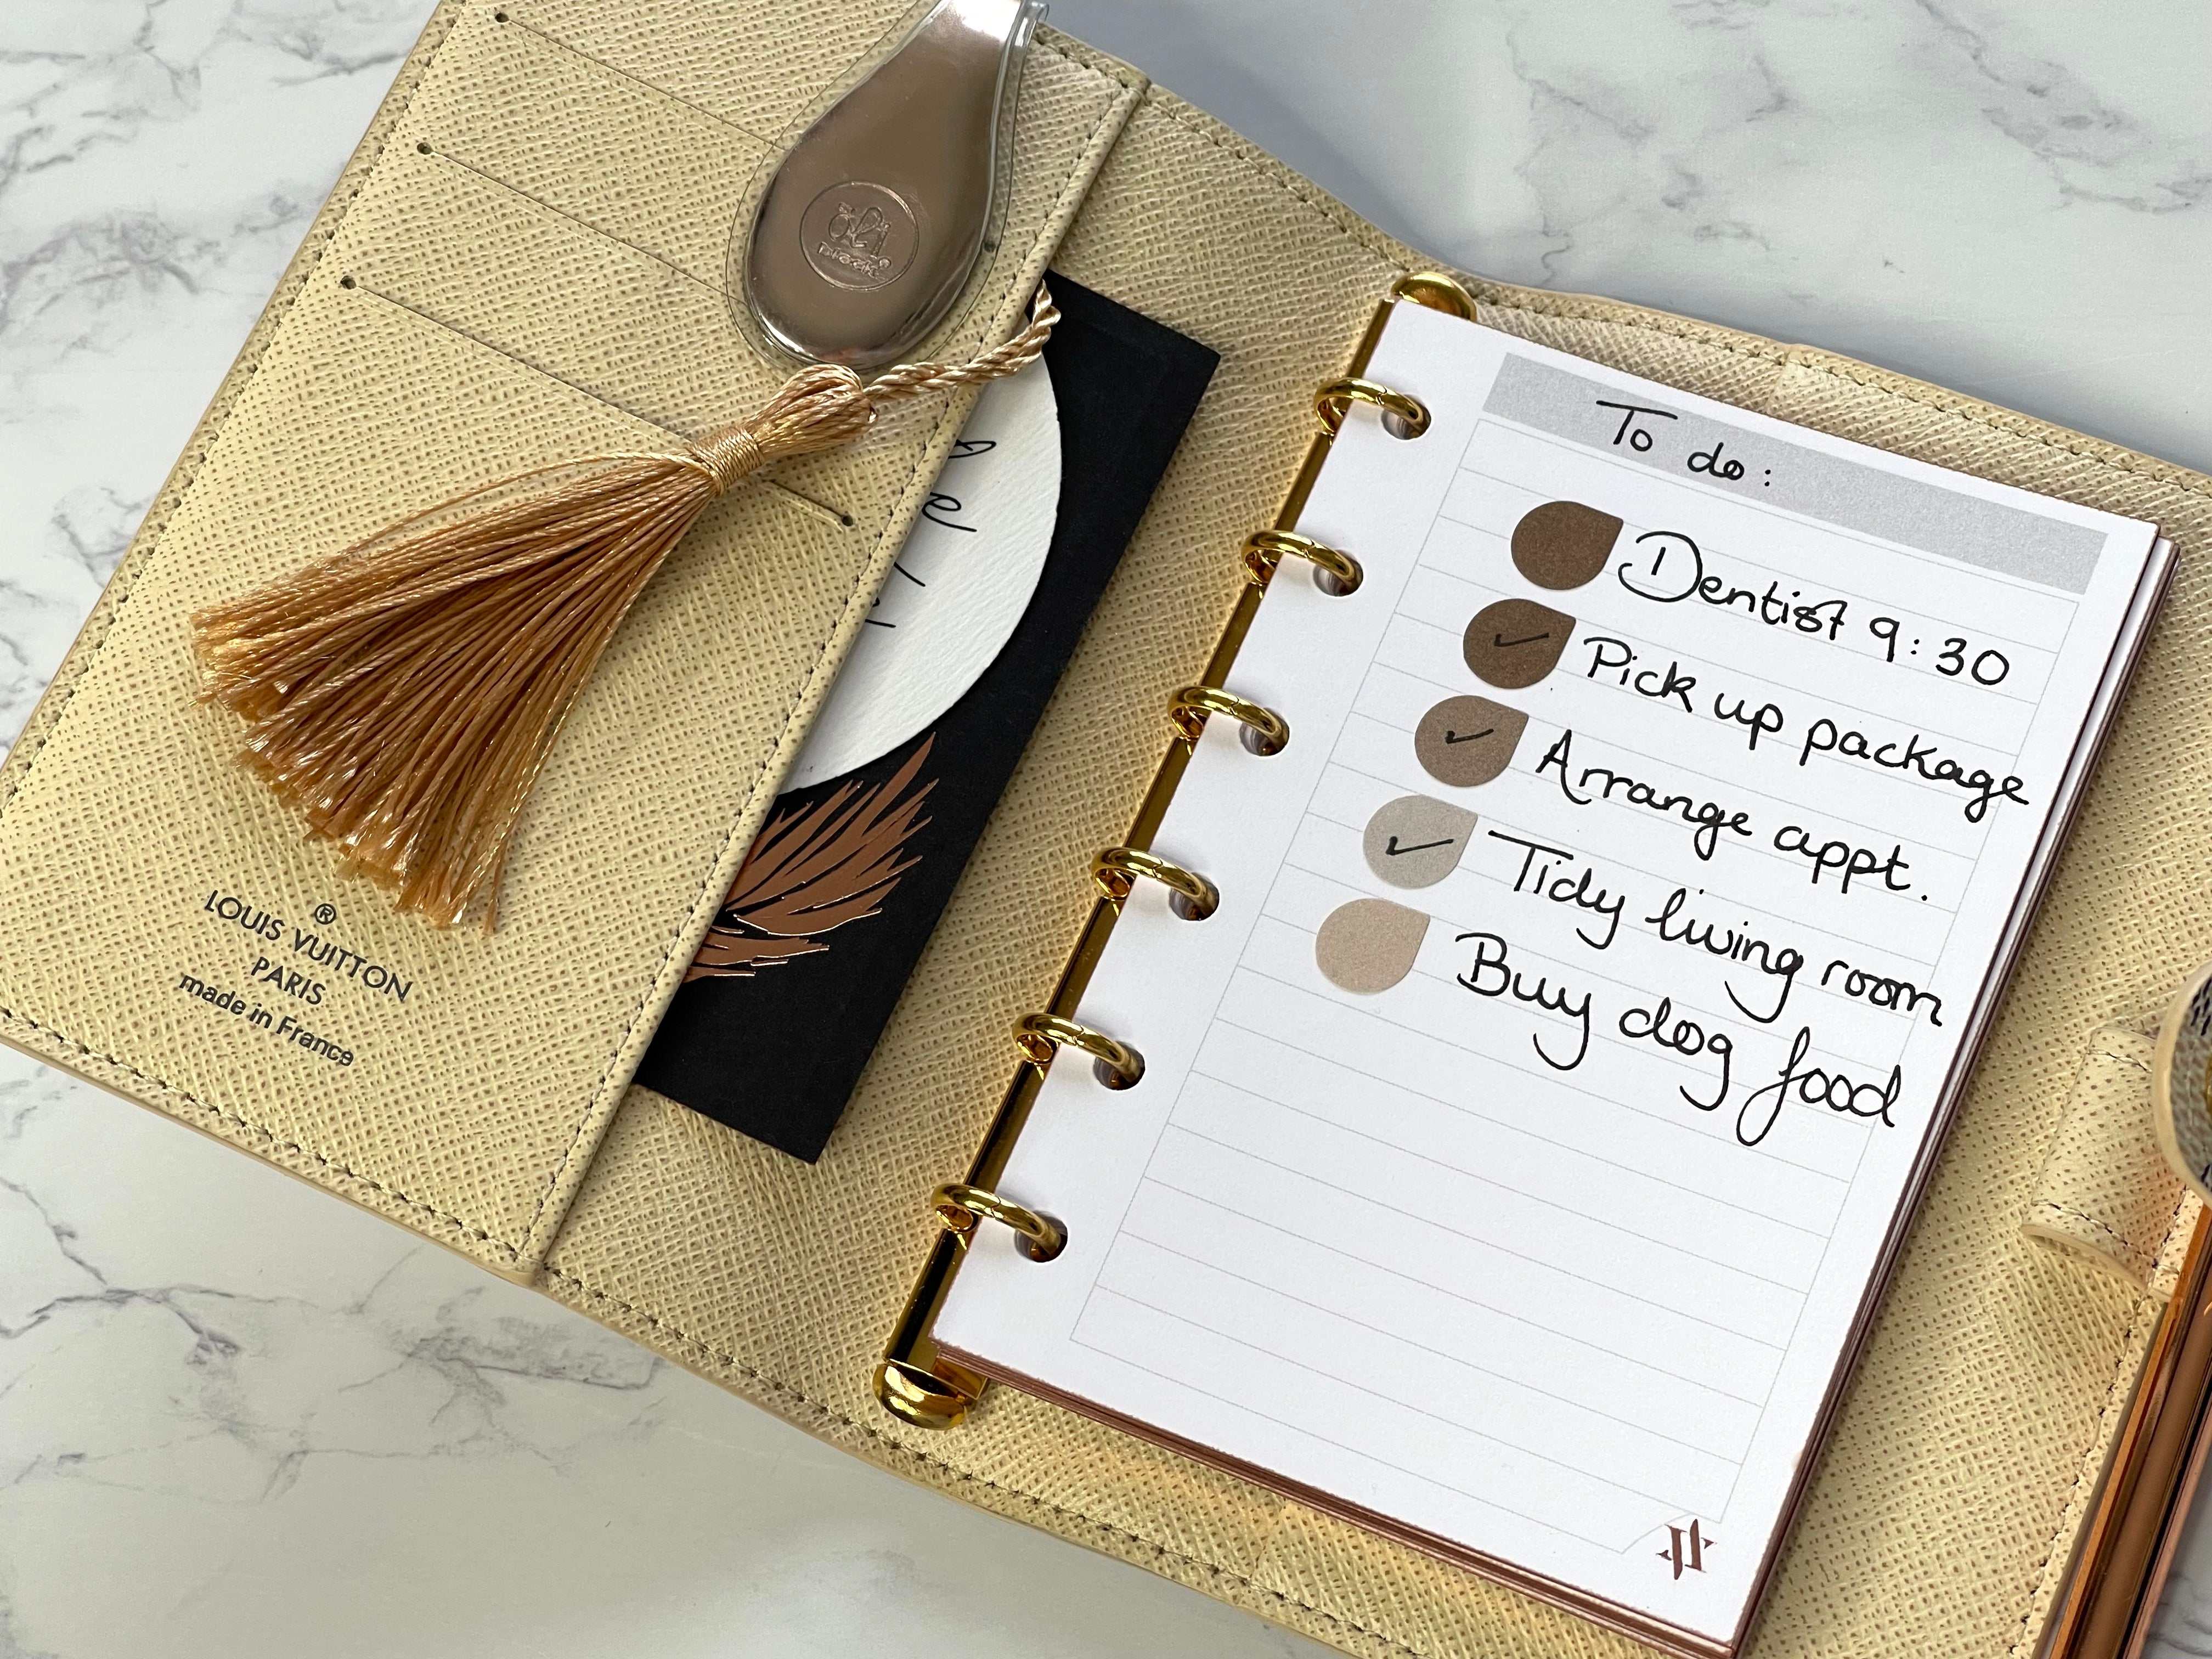 ®
LOUIS VUITTON
PARIS
made in France
To do:
Dentist 9:30
✓ Pick up package
✓ Arrange appt.
✓ Tidy living room
Buy dog food